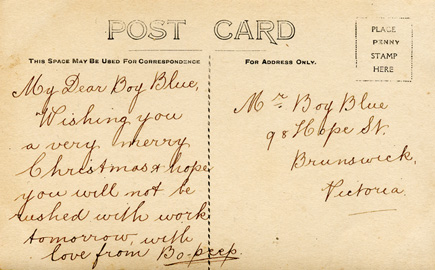 POST CARD
PLACE
PENNY
STAMP
HERE
THIS SPACE MAY BE USED FOR CORRESPONDENCE
FOR ADDRESS ONLY.
My Dear Boy Blue,
Wishing you
a very merry
Christmas & hope
you will not be
rushed with work
tomorrow, with
love from Bo-peep.
Mr Boy Blue
98 Hope St.
Brunswick,
Victoria.